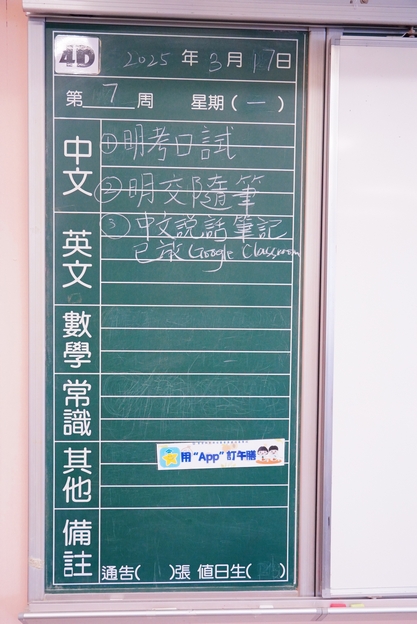 4D 2025 年 3 月 17 日
第 7 周 星期(一)
中文
①明考口試
②明交隨筆
③中文說話筆記
已放Google Classroom
英文
數學
常識
其他
用“App”訂午膳
備註
通告( )張 值日生( )